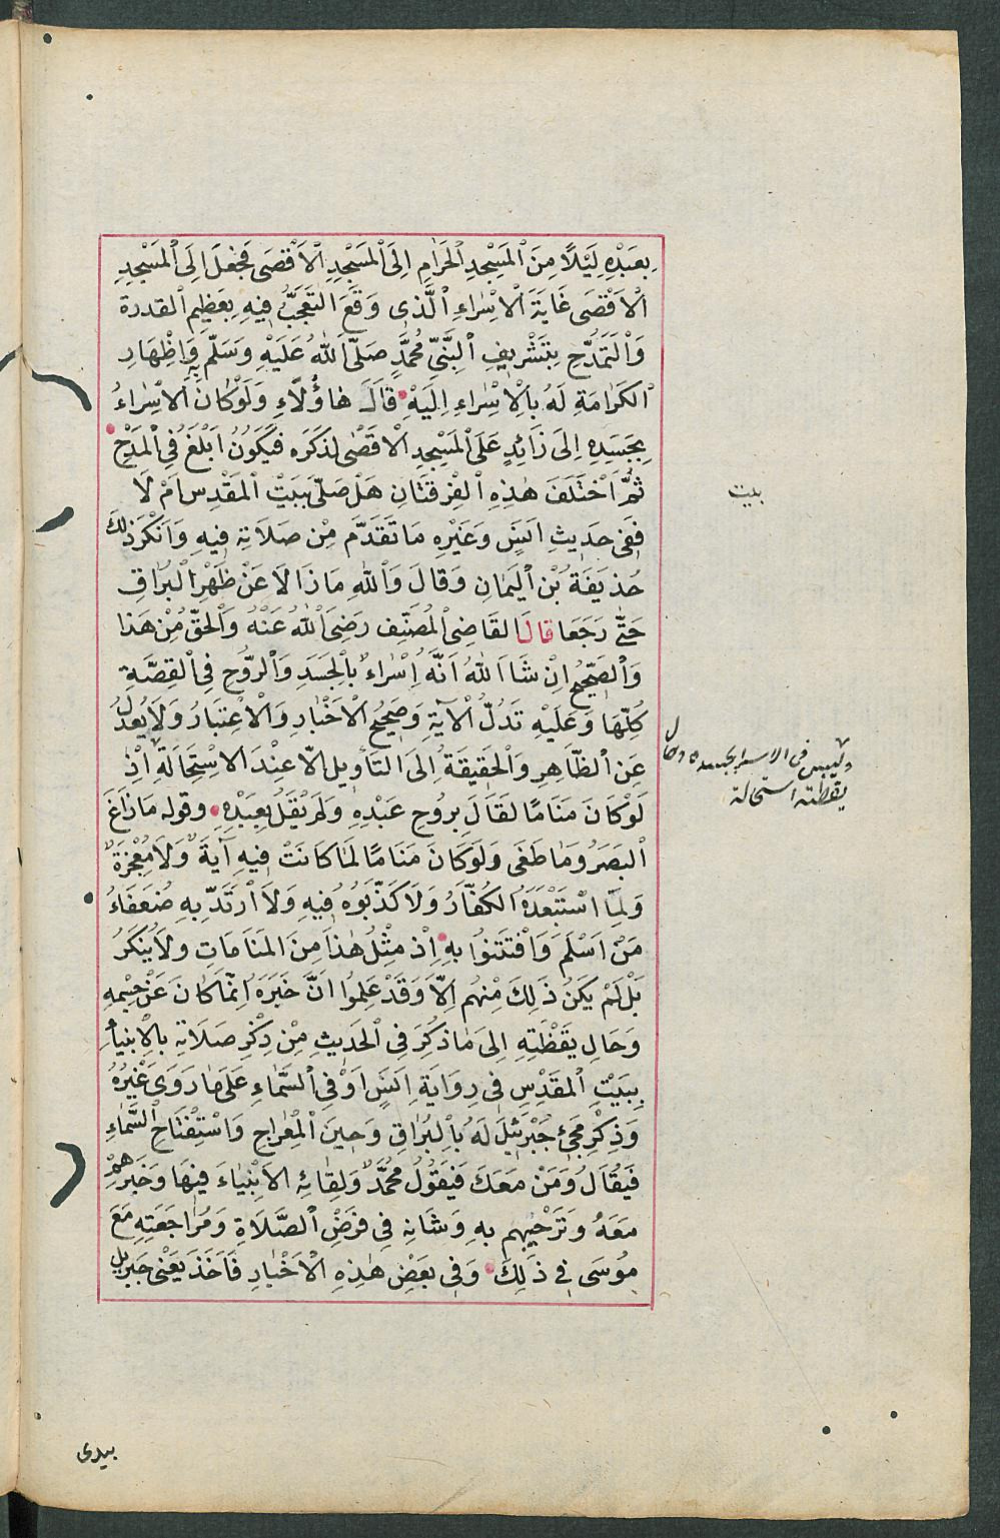 بِعَبْدِهِ لَيْلًا مِنَ الْمَسْجِدِ الْحَرَامِ اِلَى الْمَسْجِدِ الْاَقْصَى فَجَعَلَ اِلَى الْمَسْجِدِ
الْاَقْصَى غَايَةَ الْاِسْرَاءِ الَّذِى وَقَعَ التَّعَجُّبُ فِيهِ بِعَظِيمِ الْقدرة
وَالتَّمَدُّحِ بِتَشْرِيفِ النَّبِىِّ مُحَمَّدٍ صَلَّى اللهُ عَلَيْهِ وَسَلَّمَ بِهِ وَاِظْهَارِ
الْكَرَامَةِ لَهُ بِالْاِسْرَاءِ اِلَيْهِ قَالَ هٰاؤُلَاءِ وَلَوْكَانَ الْاِسْرَاءُ
بِجَسَدِهِ اِلَى زَائِدٍ عَلَى الْمَسْجِدِ الْاَقْصٰى لَذَكَرَه فَيَكُونُ اَبْلَغُ فِى الْمَدْحِ
ثُمَّ اخْتَلَفَ هٰذِهِ الْفِرْقَتَانِ هَلْ صَلّى بِبَيْتِ الْمَقْدِسِ اَمْ لَا
فَفِى حَدِيثِ اَنَسٍ وَغَيْرِهِ مَا تَقَدَّمَ مِنْ صَلَاتِهِ فِيهِ وَاَنْكَرَ ذٰلِكَ
حُذَيفَةُ بْنُ الْيَمَانِ وَقَالَ وَاللهِ مَا زَالَا عَنْ ظَهْرِ الْبُرَاقِ
حَتَّى رَجَعَا قَالَ القَاضِى الْمُصَنِّف رَضِىَ اللهُ عَنْهُ وَالْحَقُّ مِنْ هَذا
وَالصَّحِيحُ اِنْ شَا اللهُ اَنَّهُ اِسْرَاءٌ بِالْجَسَدِ وَالرُّوحِ فِى الْقِصَّةِ
كُلِّهَا وَعَلَيْهِ تَدُلُّ الْآيَةِ وَصَحِيحُ الْاَخْبَارِ وَالْاِعْتِبَارُ وَلَا يُعْدَلُ
عَنِ الظَّاهِرِ وَالْحَقِيقَةُ اِلَى التَّاْوِيلِ اِلَّا عِنْدَ الْاِسْتِحَالَةِ اِذْ
لَوْ كَانَ مَنَامًا لَقَالَ بِرُوحِ عَبْدِهِ وَلَمْ يَقُلْ بِعَبْدِهِ وقوله مَا زَاغَ
الْبَصَرُ وَمٰا طَغَى وَلَوْكَانَ مَنَامًا لَمَا كَانَتْ فِيهِ آيَةٌ وَلَا مُعْجِزَةٌ
وَلَمَّا اسْتَبْعَدَهُ الكُفَّارُ وَلَا كَذَّبُوهُ فِيهِ وَلَا ارْتَدَّ بِهِ ضُعَفَاءُ
مَنْ اَسْلَمَ وَافْتَتَنُوا بِهِ اِذْ مِثْلُ هٰذَا مِنَ المَنَامَاتِ وَلَا يُنْكَرُ
بَلْ لَمْ يَكُنْ ذٰلِكَ مِنْهُم اِلَّا وَقَدْ عَلِمُوا اَنَّ خَبَرَهُ اِنَّمَا كَانَ عَنْ جِسْمِهِ
وَحَالِ يَقْظَتِهِ اِلىَ مَا ذُكِرَ فِى الْحَدِيثِ مِنْ ذِكْرِ صَلَاتِهِ بالْاَنْبِيَاءِ
بِبَيْتِ الْمقَدْسِ فِى رِوَايَةِ اَنَسٍ اَوْ فِى السَّمَاءِ عَلَى مٰا رَوَى غَيْرُهُ
وَذِكْرِ مَجِئِ جِبْرَئِيلَ لَهُ بِالْبُرَاقِ وَحِينَ الْمِعْرَاجِ وَاسْتِفْتَاحِ السَّمَاءِ
فَيُقَالُ وَمَنْ مَعَكَ فَيَقُولُ مُحَمَّدٌ وَلِقَائِهِ الْاَنْبِيَاءَ فِيهَا وَخَبَرِهِمْ
مَعَهُ وَتَرْحِيبِهِم بِهِ وَشَانِهِ فِى فَرْضِ الصَّلَاةِ وَمُرَاجَعَتِهِ مَعَ
مُوسَى فِى ذٰلِكَ وَفِى بَعْضِ هٰذِهِ الْاَخْبَارِ فَاَخَذَ يَعْنِى جِبْرِيلُ
بيت
وليس فى الاسرا بجسده وحال
يقظته استحالة
بيدى